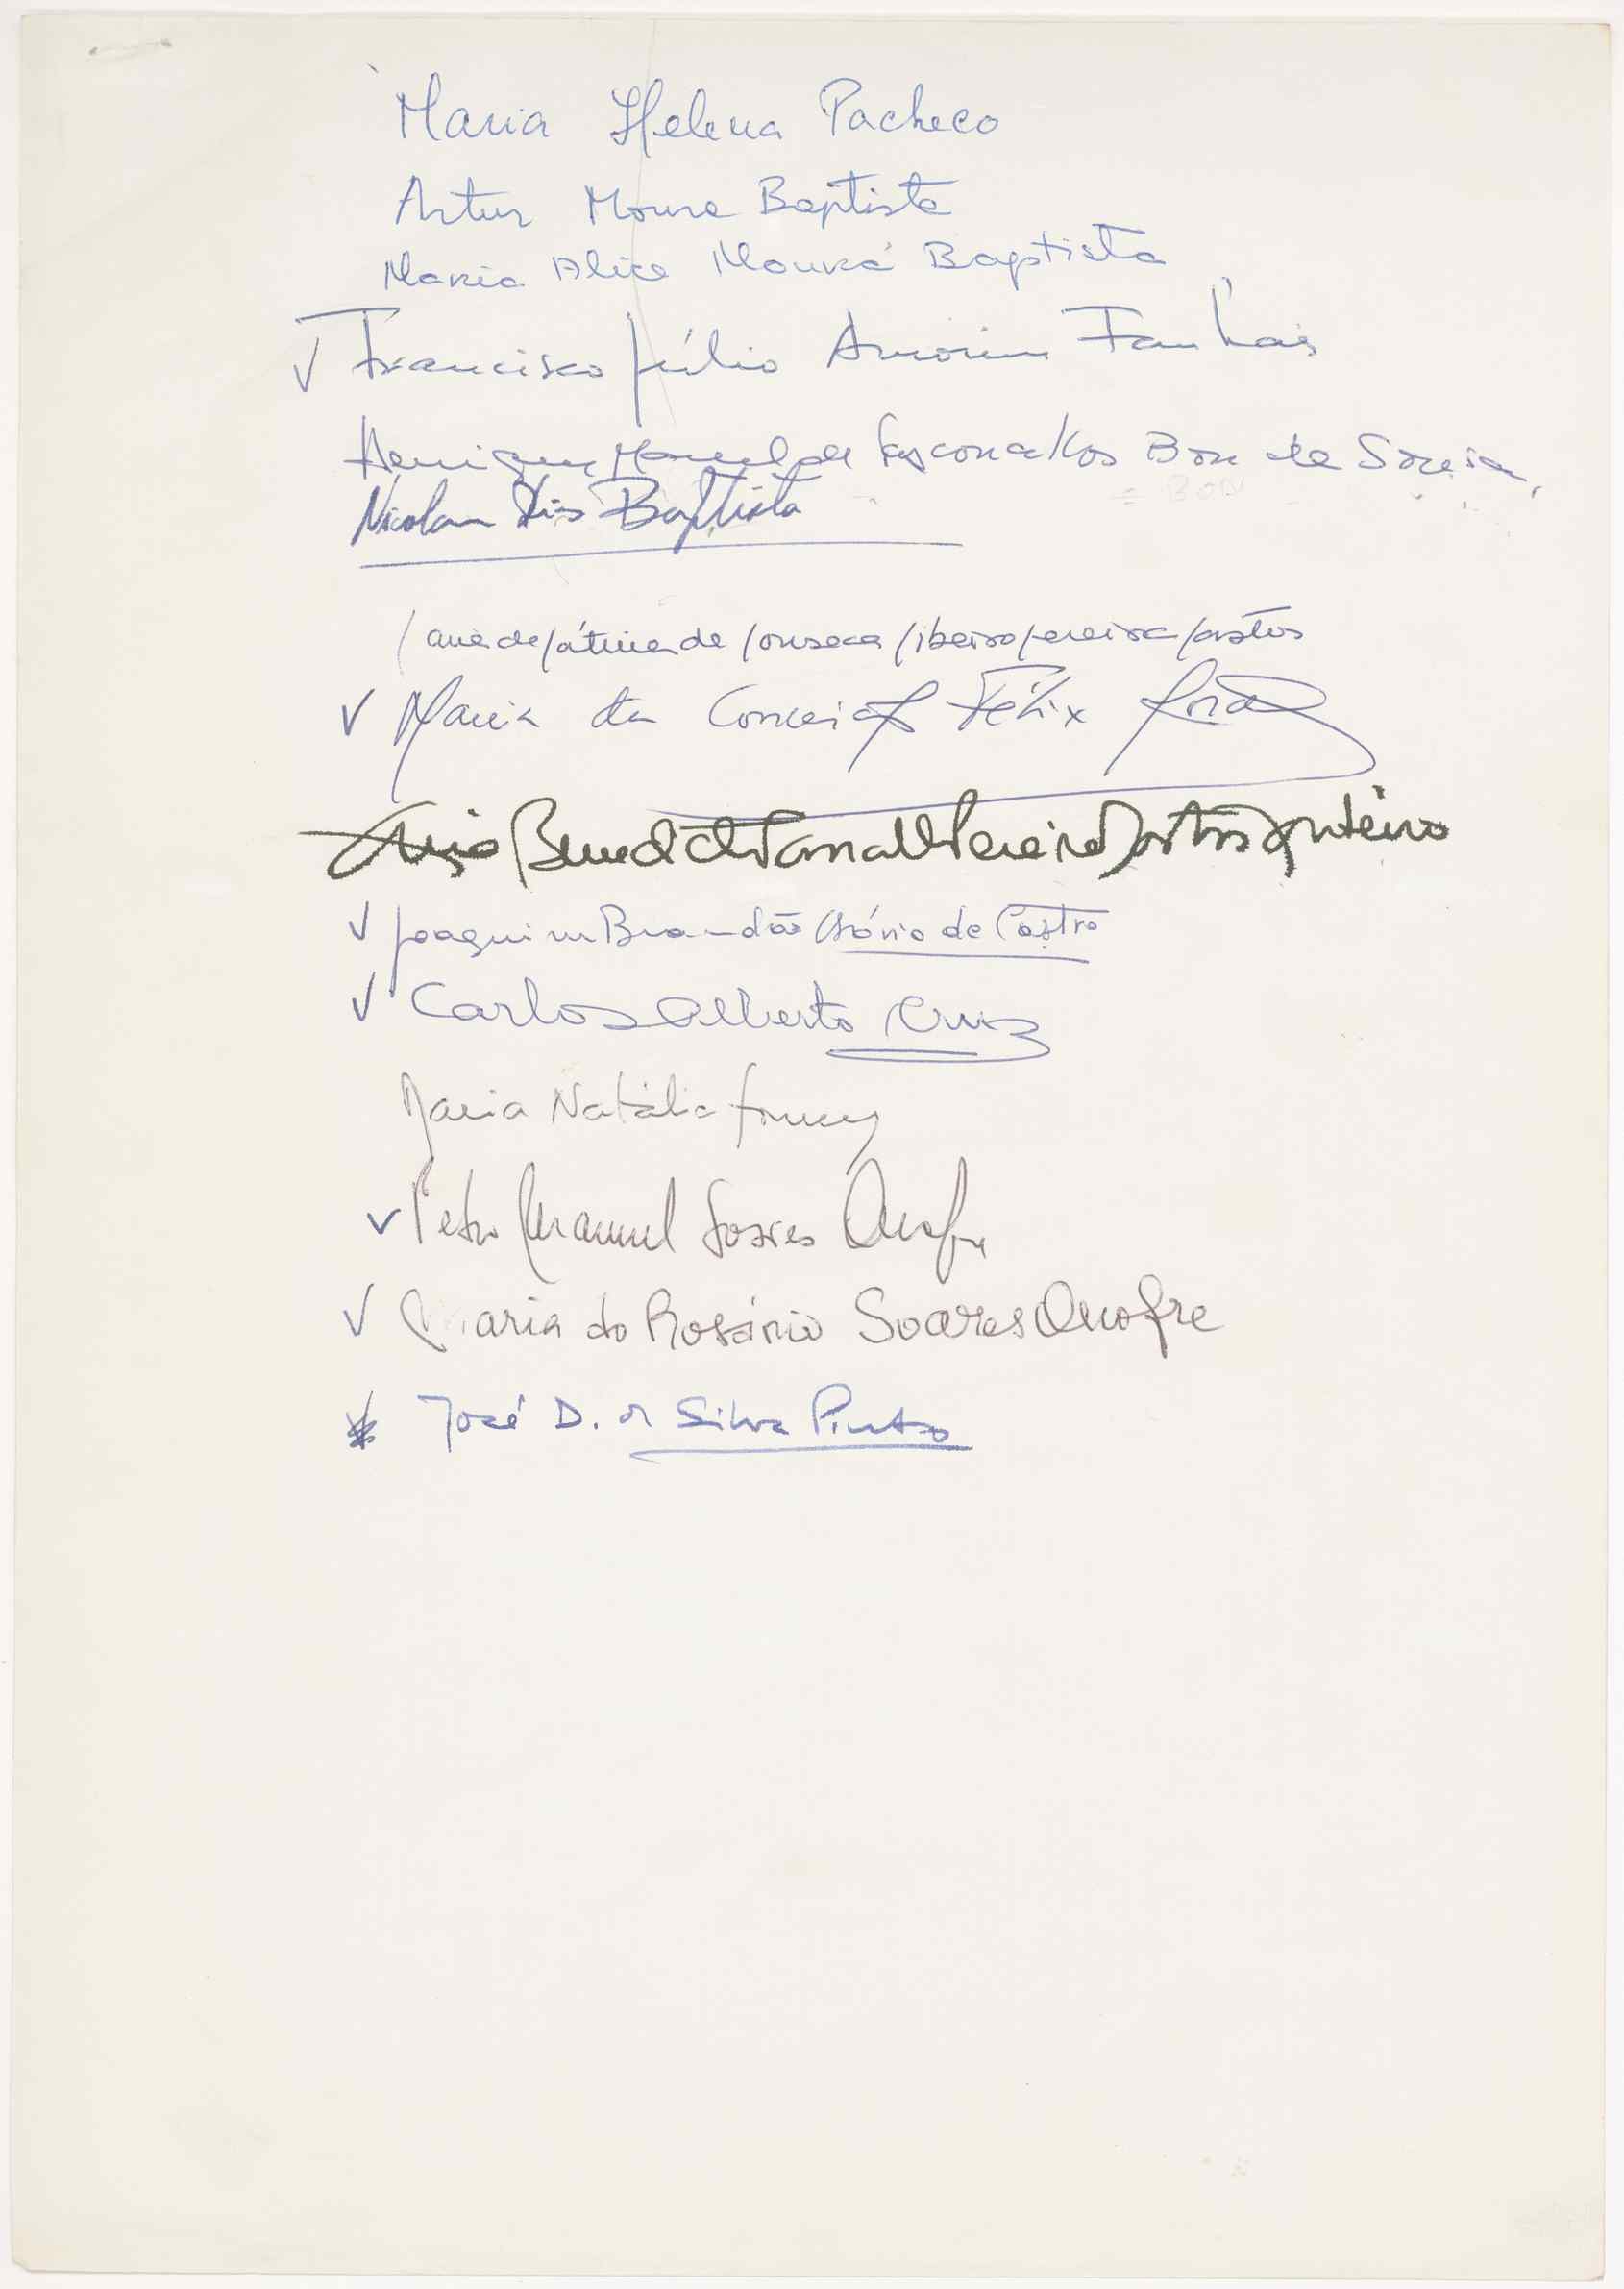 Maria Helena Pacheco
Artur Moura Baptista
Maria Alice Moura Baptista
✓ Francisco Júlio Amorim Fanhais
Henrique Manuel de Vasconcellos Bon de Sousa
= BON
Nicolau Dias Baptista
ana de fátima de fonseca ribeiro pereira bastos
✓ Maria da Conceição Félix
Pereira Bastos Monteiro
✓ Joaquim Brandão Osório de Castro
✓ Carlos Alberto Cruz
Maria Natália
✓ Pedro Manuel Soares Onofre
✓ Maria do Rosário Soares Onofre
José D. da Silva Pinto